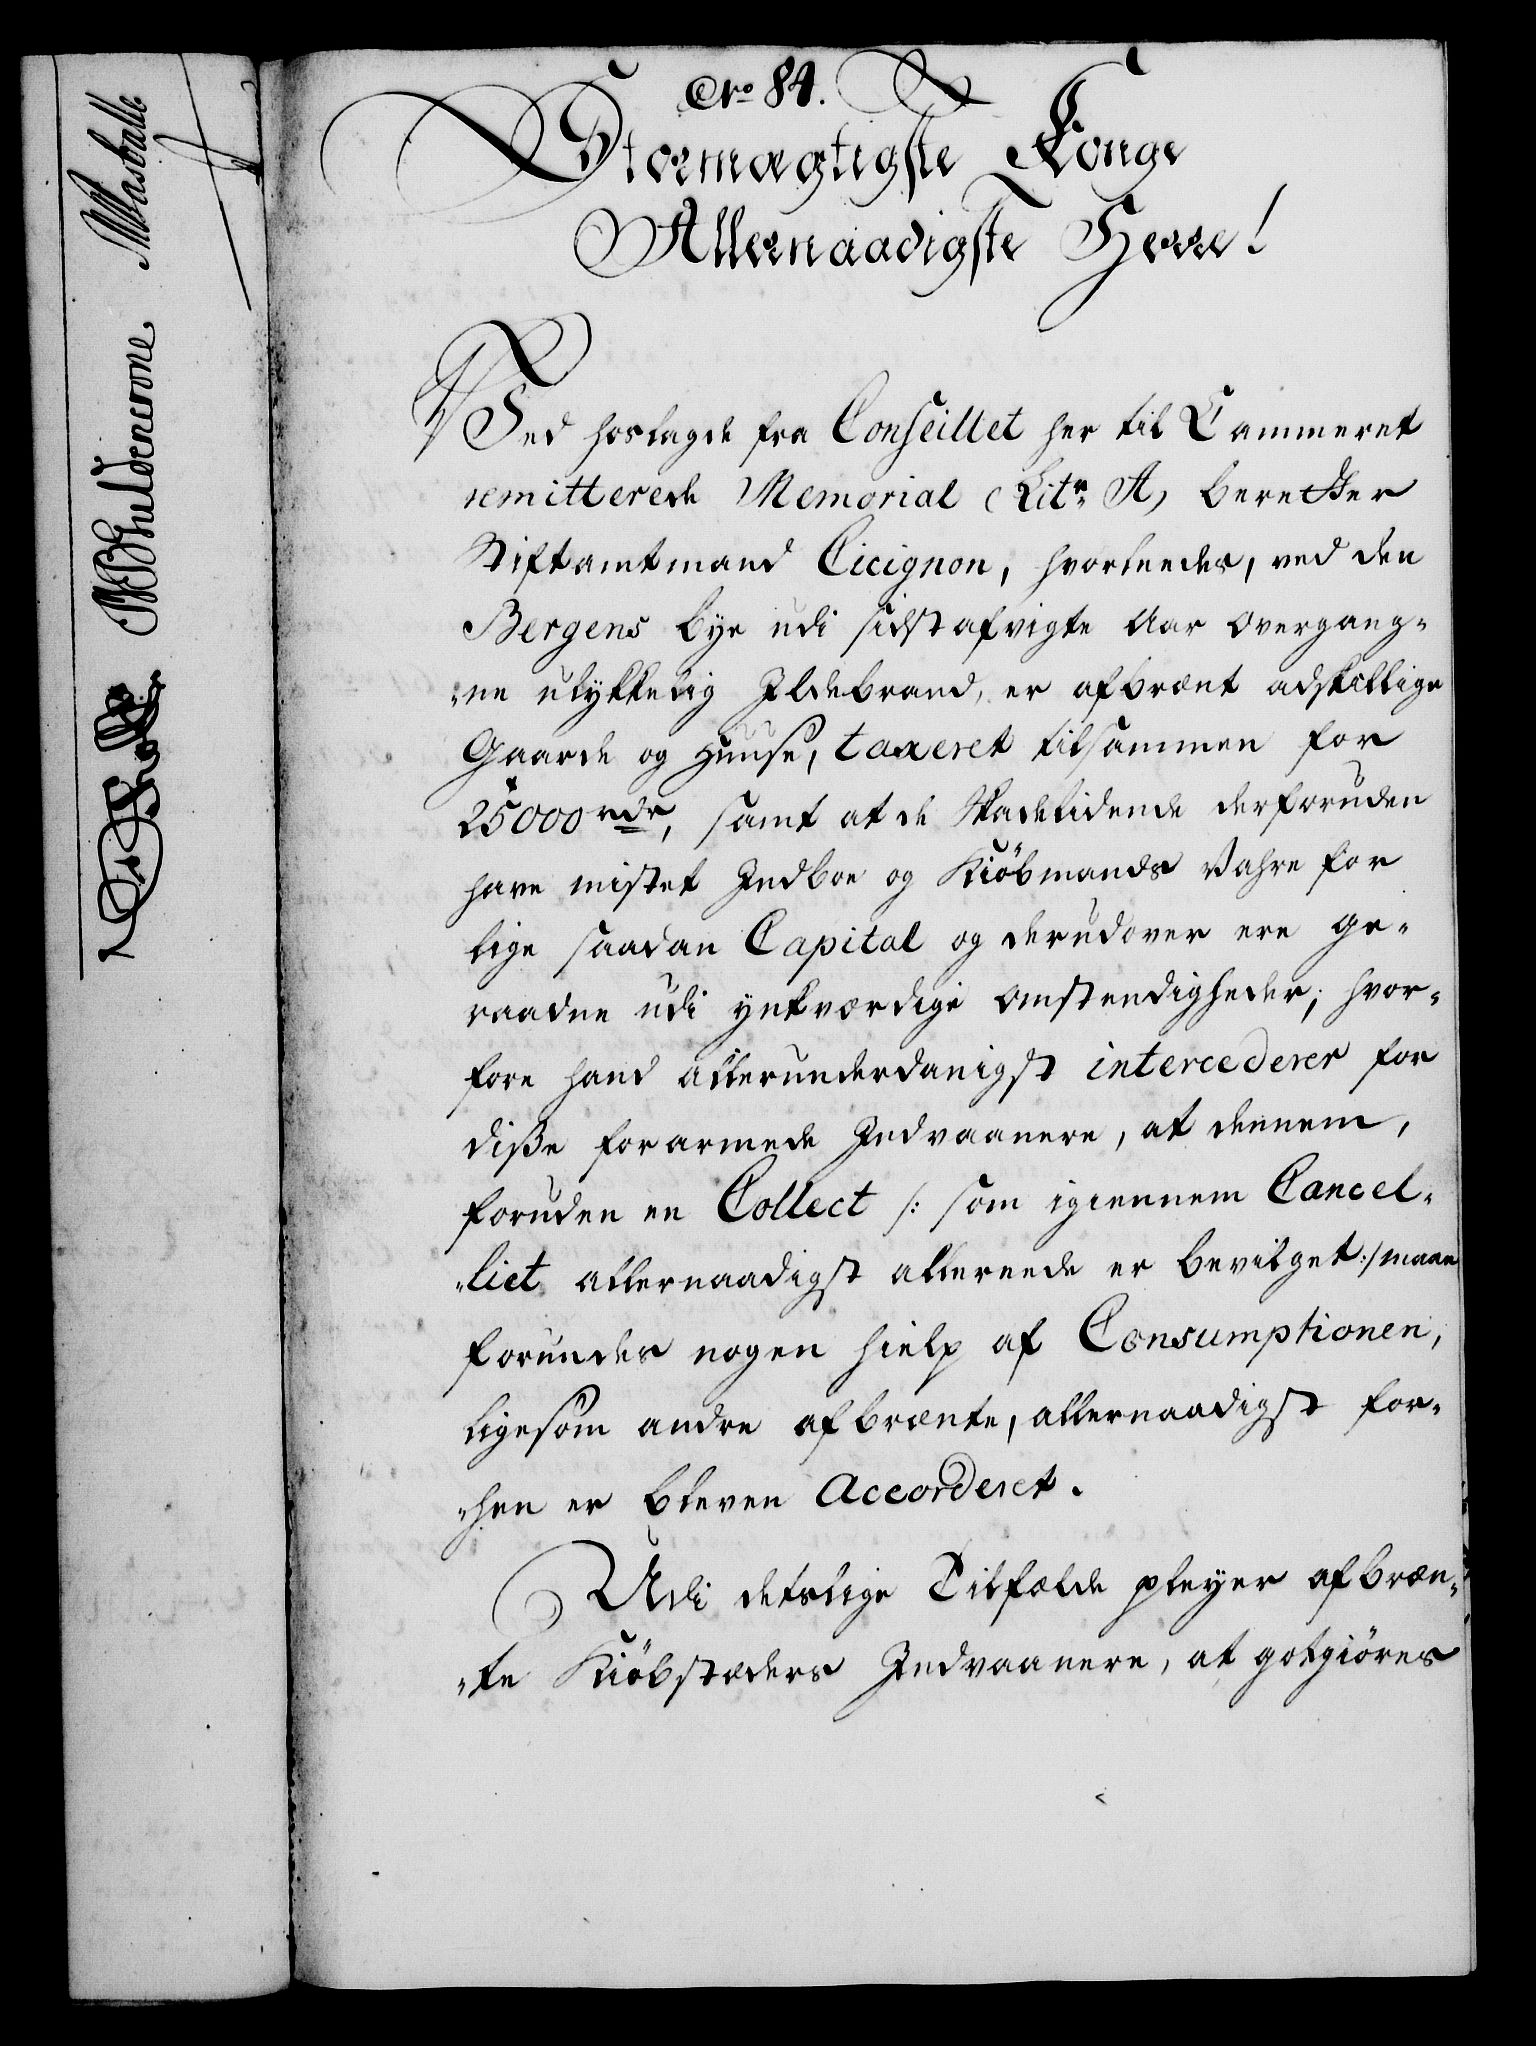 No. 84.
Stormægtigste Konge
Allernaadigste Herre!
Ved hoslagde fra Conseillet her til Cammeret
remitterede Memorial (Litr. A) beretter
Stiftamtmand Cicignon, hvorleedes, ved den
Bergens bye udi sidst afvigte Aar overgang-
-ne ulykkelig Ildebrand, er afbrænt adskillige
Gaarde og Huuse, taxeret tilsammen for
25000 rdr, samt at de Skadelidende derforuden
have mistet Indboe og Kiøbmands Vahre for
lige saadan Capital og derudover ere ge-
raadne udi ynkværdige omstendigheder; hvor-
fore hand allerunderdanigst intercederer for
diße forarmede Indvaanere, at dennem,
foruden en Collect /: som igiennem Cancel-
-liet allernaadigst allereede er bevilget :/ maae
forundes nogen hielp af Consumptionen,
ligesom andre afbrænte, allernaadigst for-
-hen er bleven Accorderet.
Udi deslige Tilfælde pleyer afbræn-
-te Kiøbstæders Indvaanere, at gotgiøres